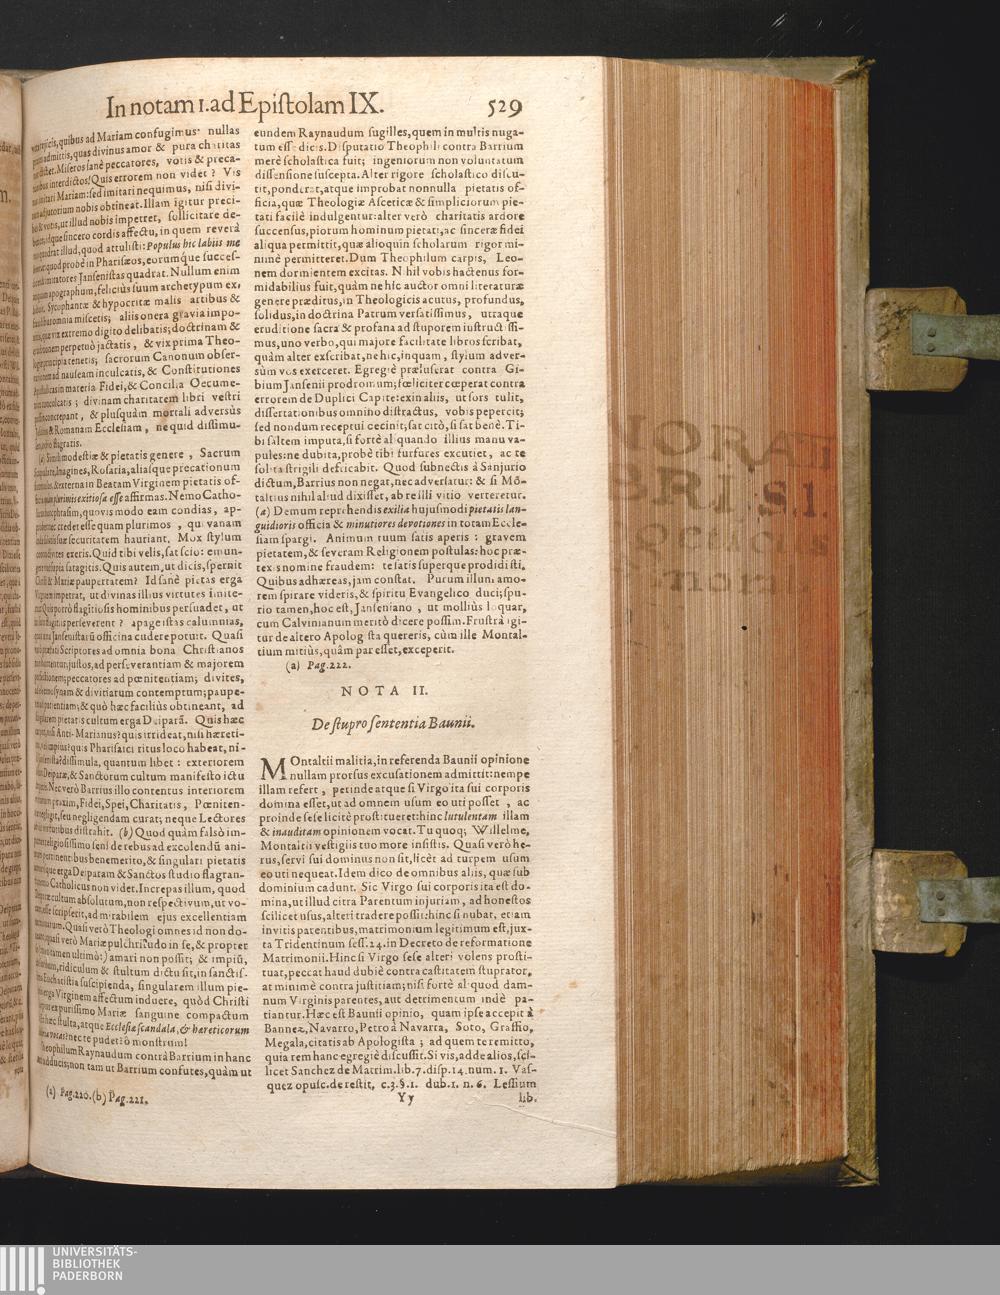 In notam I. ad Epiſtolam IX. 529
quibus ad Mariam confugimus nullas
admittis, quas divinus amor & pura charitas
Miſeros ſanè peccatores, votis & preca-
interdictos! Quis errorem non videt? Vis
imitari Mariam: ſed imitari nequimus, niſi divi-
adjutorium nobis obtineat. Illam igitur preci-
& votis, ut illud nobis impetret, ſollicitare de-
ſincero cordis affectu, in quem reverà
quadrat illud, quod attuliſti: Populus hic labiis me
quod probè in Phariſæos, eorumque ſucceſ-
imitatores Janſeniſtas quadrat. Nullum enim
apographum, feliciùs ſuum archetypum ex-
Sycophantæ & hypocritæ malis artibus &
omnia miſcetis; aliis onera gravia impo-
quæ vix extremo digito delibatis; doctrinam &
perpetuò jactatis, & vix prima Theo-
principia tenetis; ſacrorum Canonum obſer-
ad nauſeam inculcatis, & Conſtitutiones
in materia Fidei, & Concilia Oecume-
conculcatis; divinam charitatem libri veſtri
concrepant, & pluſquàm mortali adversùs
& Romanam Eccleſiam, ne quid diſſimu-
flagratis.
(a) Simili modeſtiæ & pietatis genere, Sacrum
Imagines, Roſaria, aliaſque precationum
& externa in Beatam Virginem pietatis of-
plurimis exitioſa eſſe affirmas. Nemo Catho-
phraſim, quovis modo eam condias, ap-
credet eſſe quam plurimos, qui vanam
ſuæ ſecuritatem hauriant. Mox ſtylum
exeris. Quid tibi velis, ſat ſcio: emun-
ſatagitis. Quis autem, ut dicis, ſpernit
& Mariæ paupertatem? Id ſanè pietas erga
Virginem impetrat, ut divinas illius virtutes imite-
Quis porrò flagitioſis hominibus perſuadet, ut
flagitiis perſeverent? apage iſtas calumnias,
Janſeniſtarū officina cudere potuit. Quaſi
Scriptores ad omnia bona Chriſtianos
hortentur, juſtos, ad perſeverantiam & majorem
peccatores ad pœnitentiam; divites,
& divitiarum contemptum; paupe-
patientiam; & quò hæc faciliùs obtineant, ad
pietatis cultum erga Deiparā. Quis hæc
niſi Anti-Marianus? quis irrideat, niſi hæreti-
impius? quis Phariſaici ritus loco habeat, ni-
diſſimula, quantum libet: exteriorem
Deiparæ, & Sanctorum cultum manifeſto ictu
Nec verò Barrius illo contentus interiorem
praxim, Fidei, Spei, Charitatis, Pœniten-
negligit, ſeu negligendam curat; neque Lectores
virtutibus diſtrahit. (b) Quod quàm falsò im-
religioſiſſimo ſeni de rebus ad excolendū ani-
pertinentibus benemerito, & ſingulari pietatis
erga Deiparam & Sanctos ſtudio flagran-
Catholicus non videt. Increpas illum, quod
cultum abſolutum, non reſpectivum, ut vo-
ſcripſerit, ad mirabilem ejus excellentiam
Quaſi verò Theologi omnes id non do-
quaſi verò Mariæ pulchritudo in ſe, & propter
tamen ultimò:) amari non poſſit; & impiū,
ridiculum & ſtultum dictu ſit, in ſanctiſ-
Euchariſtia ſuſcipienda, ſingularem illum pie-
erga Virginem affectum induere, quòd Chriſti
puriſſimo Mariæ ſanguine compactum
hæc ſtulta, atque Eccleſiæ ſcandala, & hæreticorum
vocas? nec te pudet? ô monſtrum!
Theophilum Raynaudum contrà Barrium in hanc
adducis; non tam ut Barrium confutes, quàm ut
(a) Pag. 220. (b) Pag. 221.
eundem Raynaudum ſugilles, quem in multis nuga-
tum eſſe dicis. Diſputatio Theophili contra Barrium
merè ſcholaſtica fuit; ingeniorum non voluntatum
diſſenſione ſuſcepta. Alter rigore ſcholaſtico diſcu-
tit, ponderat, atque improbat nonnulla pietatis of-
ficia, quæ Theologiæ Aſceticæ & ſimpliciorum pie-
tati facilè indulgentur: alter verò charitatis ardore
ſuccenſus, piorum hominum pietati, ac ſinceræ fidei
aliqua permittit, quæ alioquin ſcholarum rigor mi-
nimè permitteret. Dum Theophilum carpis, Leo-
nem dormientem excitas. Nihil vobis hactenus for-
midabilius fuit, quàm ne hic auctor omni literaturæ
genere præditus, in Theologicis acutus, profundus,
ſolidus, in doctrina Patrum verſatiſſimus, utraque
eruditione ſacra & profana ad ſtuporem inſtructiſſi-
mus, uno verbo, qui majore facilitate libros ſcribat,
quàm alter exſcribat, ne hic, inquam, ſtylum adver-
sùm vos exerceret. Egregiè præluſerat contra Gi-
bium Janſenii prodromum; fœliciter cœperat contra
errorem de Duplici Capite: ex in aliis, ut fors tulit,
diſſertationibus omnino diſtractus, vobis pepercit;
ſed nondum receptui cecinit; ſat citò, ſi ſat benè. Ti-
bi ſaltem imputa, ſi fortè aliquando illius manu va-
pules: ne dubita, probè tibi furfures excutiet, ac te
ſolita ſtrigili defricabit. Quod ſubnectis à Sanjurio
dictum, Barrius non negat, nec adverſatur: & ſi Mō-
taltius nihil aliud dixiſſet, ab re illi vitio verteretur.
(a) Demum reprehendis exilia hujuſmodi pietatis lan-
guidioris officia & minutiores devotiones in totam Eccle-
ſiam ſpargi. Animum tuum ſatis aperis: gravem
pietatem, & ſeveram Religionem poſtulas: hoc præ-
texis nomine fraudem: te ſatis ſuperque prodidiſti.
Quibus adhæreas, jam conſtat. Purum illum amo-
rem ſpirare videris, & ſpiritu Evangelico duci; ſpu-
rio tamen, hoc eſt, Janſeniano, ut molliùs loquar,
cum Calvinianum meritò dicere poſſim. Fruſtrà igi-
tur de altero Apologiſta quereris, cùm ille Montal-
tium mitiùs, quâm par eſſet, exceperit.
(a) Pag. 222.
NOTA II.
De ſtupro ſententia Baunii.
MOntaltii malitia, in referenda Baunii opinione
nullam prorſus excuſationem admittit: nempe
illam refert, perinde atque ſi Virgo ita ſui corporis
domina eſſet, ut ad omnem uſum eo uti poſſet, ac
proinde ſe ſe licitè proſtitueret: hinc lutulentam illam
& inauditam opinionem vocat. Tu quoq; Willelme,
Montaltii veſtigiis tuo more inſiſtis. Quaſi verò he-
rus, ſervi ſui dominus non ſit, licèt ad turpem uſum
eo uti nequeat. Idem dico de omnibus aliis, quæ ſub
dominium cadunt. Sic Virgo ſui corporis ita eſt do-
mina, ut illud citra Parentum injuriam, ad honeſtos
ſcilicet uſus, alteri tradere poſſit: hinc ſi nubat, etiam
invitis parentibus, matrimonium legitimum eſt, jux-
ta Tridentinum ſeſſ. 24. in Decreto de reformatione
Matrimonii. Hinc ſi Virgo ſeſe alteri volens proſti-
tuat, peccat haud dubiè contra caſtitatem ſtuprator,
at minimè contra juſtitiam; niſi fortè aliquod dam-
num Virginis parentes, aut detrimentum indè pa-
tiantur. Hæc eſt Baunii opinio, quam ipſe accepit à
Bannez, Navarro, Petro à Navarra, Soto, Graffio,
Megala, citatis ab Apologiſta; ad quem te remitto,
quia rem hanc egregiè diſcuſſit. Si vis, adde alios, ſci-
licet Sanchez de Matrim. lib. 7. diſp. 14. num. 1. Vaſ-
quez opuſc. de reſtit. c. 3. §. 1. dub. 1. n. 6. Leſſium
Yy lib.
UNIVERSITÄTS-
BIBLIOTHEK
PADERBORN